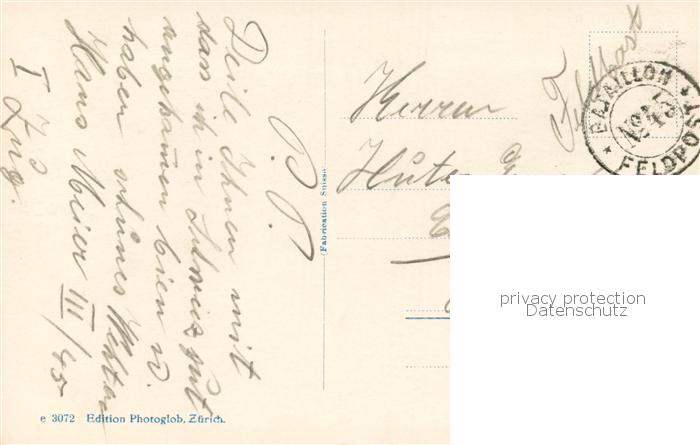 P. P.
Teile Ihnen mit
das ich in Schweiz gut
angekommen bien u.
haben schönes Wetter
Hans Meier III/45
I Zug.
Feldpost
BATAILLON No 45 FELDPOST
Herren
(Fabrication Suisse)
privacy protection
Datenschutz
e 3072 Edition Photoglob, Zürich.